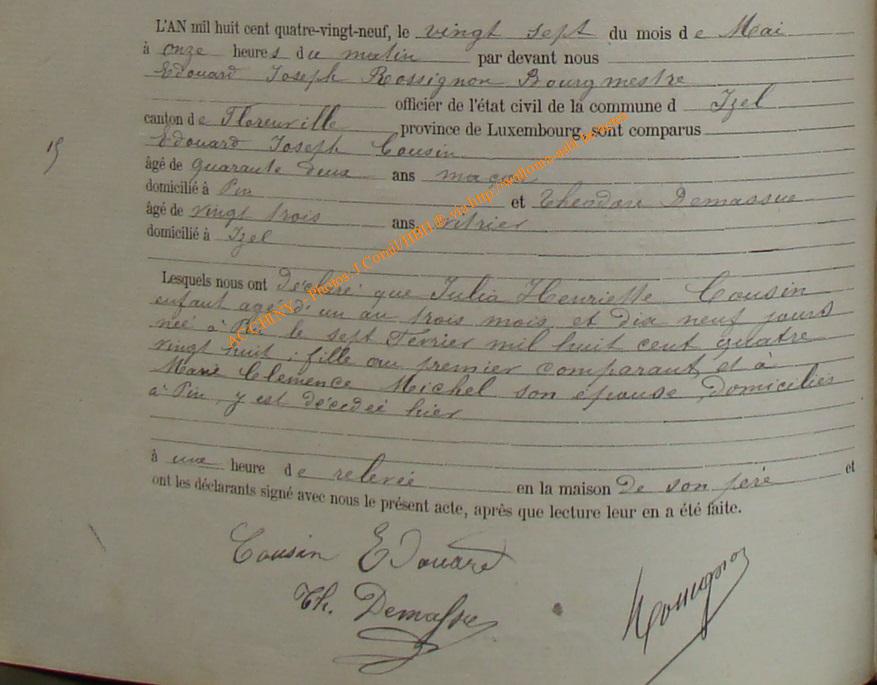 L'AN mil huit cent quatre-vingt-neuf, le vingt sept du mois de Mai
à onze heures du matin par devant nous
Edouard Joseph Rossignon Bourgmestre
officier de l'état civil de la commune d Izel
canton de Florenville province de Luxembourg, sont comparus
Edouard Joseph Cousin
15
âgé de quarante deux ans maçon
domicilié à Pin et Theodore Demassue
âgé de vingt trois ans vitrier
domicilié à Izel
Lesquels nous ont Déclaré que Julia Henriette Cousin
enfant agé d'un an trois mois et dix neuf jours
née à Pin le sept Fevrier mil huit cent quatre
vingt huit; fille au premier comparant et à
Marie Clemence Michel son épouse, domiciliés
à Pin, y est décedée hier
à une heure de relevée en la maison De son père et
ont les déclarants signé avec nous le présent acte, après que lecture leur en a été faite.
Cousin Edouard
Th. Demasse
Rossignon
ACCHINY - Photos J Conil/HBH ® via http://wallonia-asbl